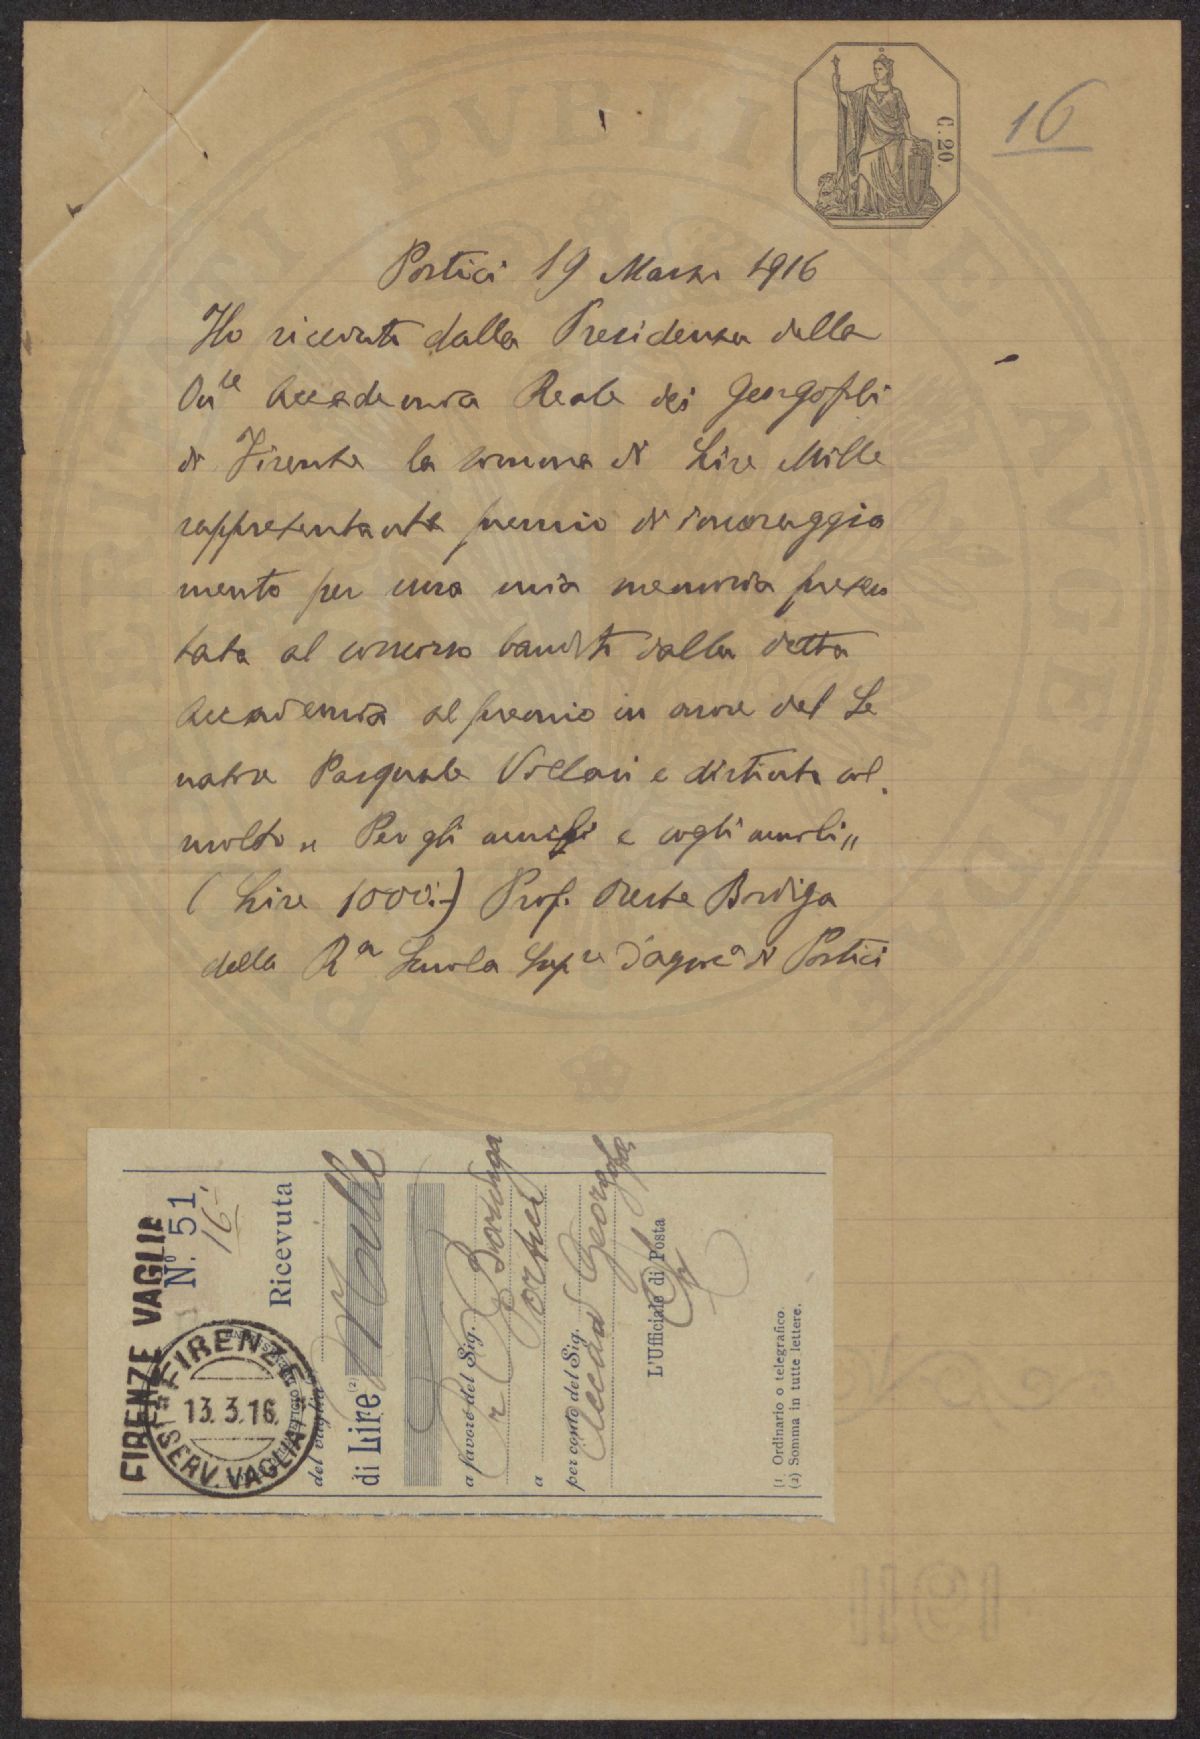 C. 20.
16
Portici 19 Marzo 1916
Ho ricevuto dalla Presidenza della
On.le Accademia Reale dei Georgofili
di Firenze la somma di Lire Mille
rappresentante premio di incoraggia
mento per una mia memoria presen
tata al concorso bandito dalla detta
Accademia al premio in onore del Se
natore Pasquale Villari e distinta col
motto „ Per gli umili e cogli umili „
(Lire 1000.-) Prof. Oreste Bordiga
della R.a Scuola Sup.re d'agric.a di Portici
FIRENZE VAGLIA
N.° 51
16
FIRENZE
13.3.16
SERV. VAGLIA
Ricevuta
del vaglia
di Lire (2) Mille
a favore del Sig. Bordiga
a Portici
per conto del Sig. Accad Georgofili
L'Ufficiale di Posta
(1 Ordinario o telegrafico.
(2) Somma in tutte lettere.
1911